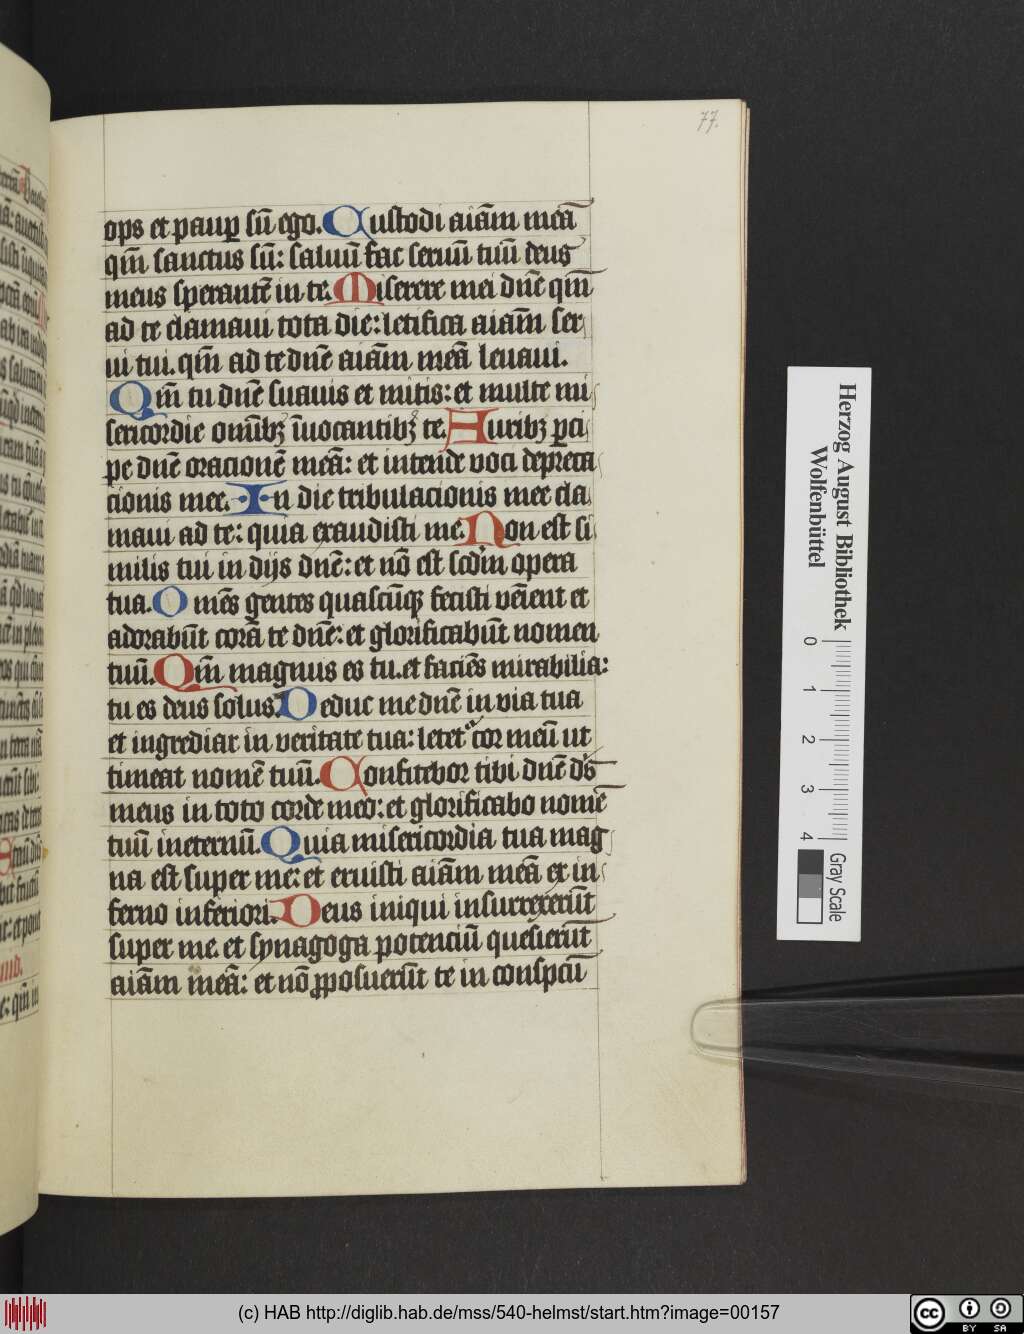 77.
ops et paup̱ sū ego. Custodi aiām meā
qm̄ sanctus sū: saluū fac seruū tuū deus
meus sperantē in te. Miserere mei dn̄e qm̄
ad te clamaui tota die: letifica aiām ser
ui tui. qm̄ ad te dn̄e aiām meā leuaui.
Qm̄ tu dn̄e suauis et mitis: et multe mi
sericordie om̄ibꝫ īuocantibꝫ te. Auribꝫ ꝑci
pe dn̄e oracionē meā: et intende voci depreca
cionis mee. In die tribulacionis mee cla
maui ad te: quia exaudisti me. Non est si
milis tui in dijs dn̄e: et nō est scdm̄ opera
tua. Omēs gentes quascūqꝫ fecisti vēient et
adorabūt corā te dn̄e: et glorificabūt nomen
tuū. Qm̄ magnus es tu. et faciēs mirabilia:
tu es deus solus. Deduc me dn̄e in via tua
et ingrediar in veritate tua: letetᵃ cor meū ut
timeat nomē tuū. Confitebor tibi dn̄e ds̄
meus in toto corde meo: et glorificabo nomē
tuū ineternū. Quia misericordia tua mag
na est super me: et eruisti aiām meā ex in
ferno inferiori. Deus iniqui insurrexerūt
super me. et synagoga potenciū quesierūt
aiām meā: et nō ꝓposuerūt te in conspcū
Herzog August Bibliothek
Wolfenbüttel
0 1 2 3 4
Gray Scale
(c) HAB http://diglib.hab.de/mss/540-helmst/start.htm?image=00157
cc BY SA